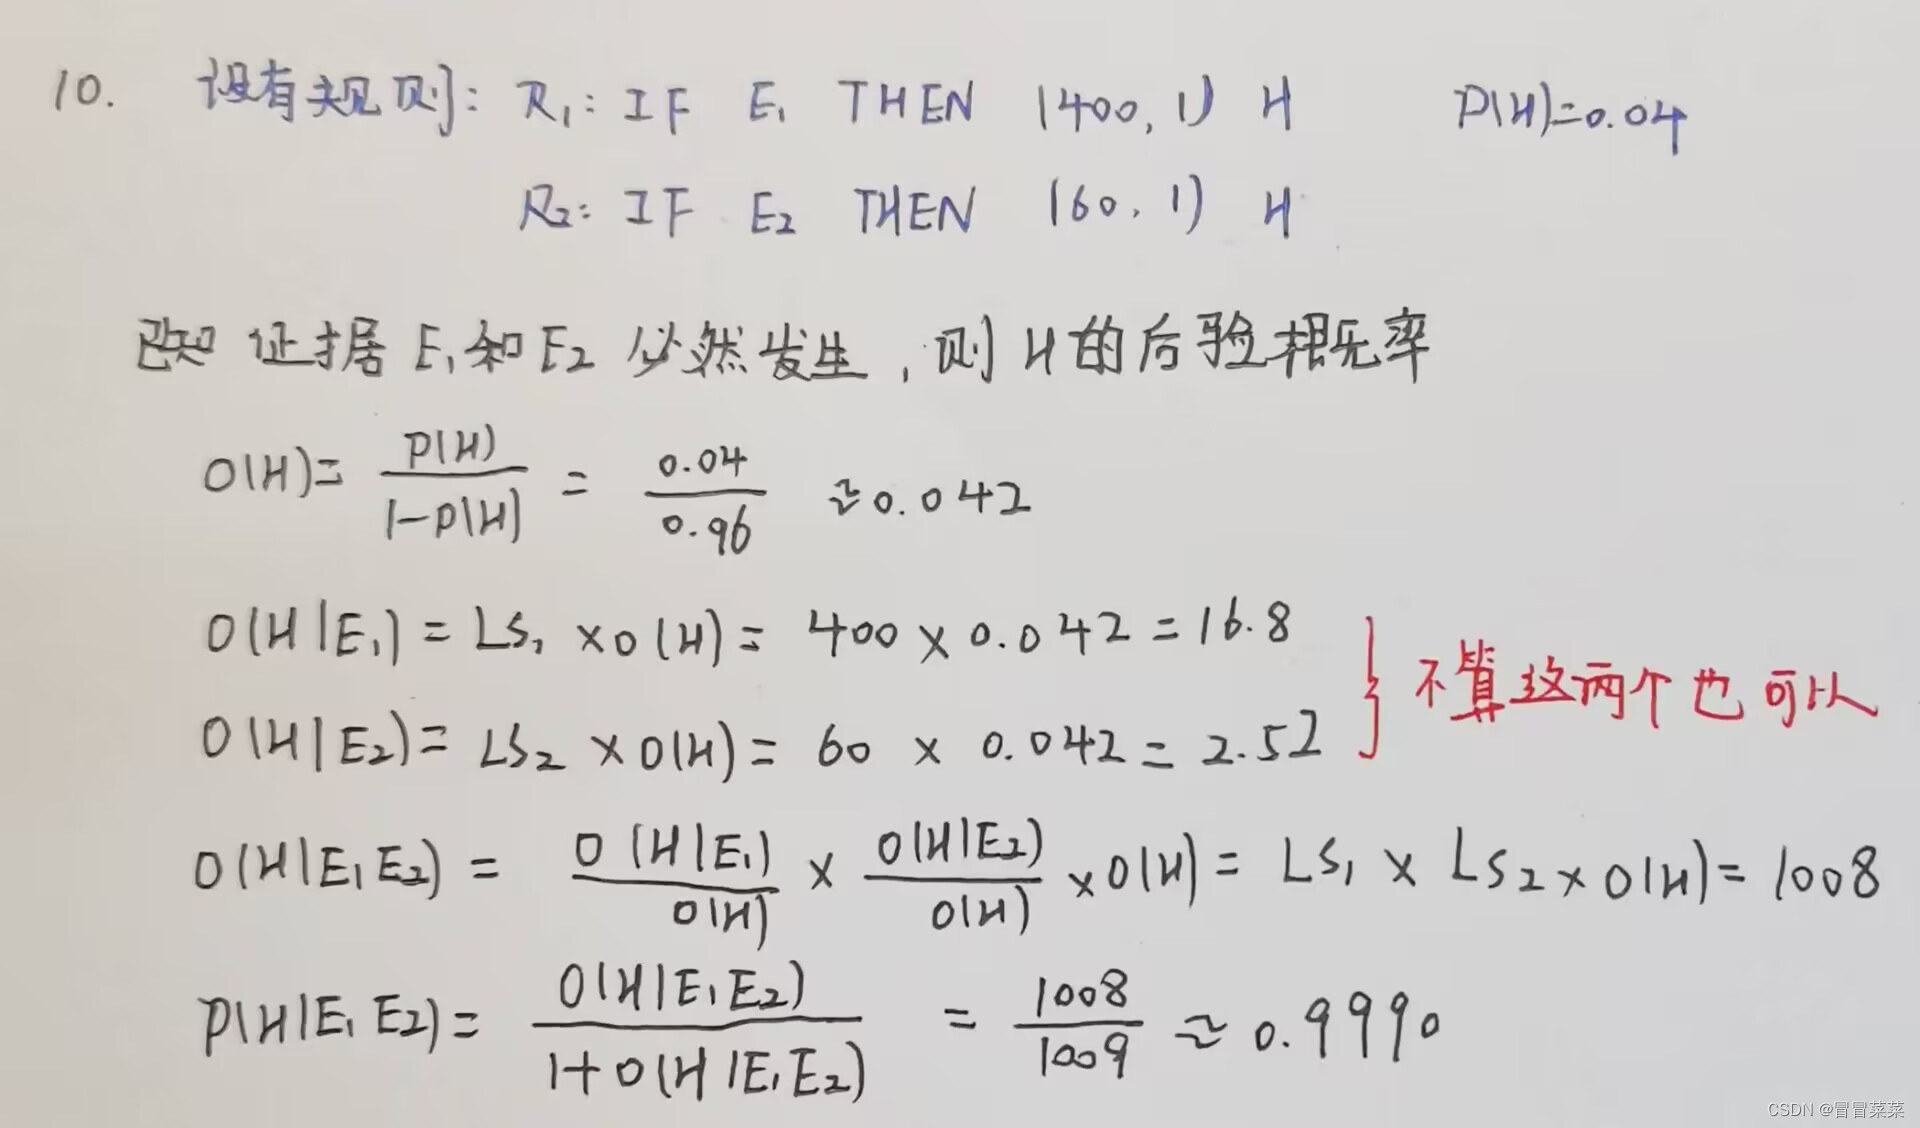 10. 设有规则: R₁: IF E₁ THEN (400, 1) H P(H)=0.04
R₂: IF E₂ THEN (60, 1) H
已知证据E₁和E₂必然发生,则H的后验概率
O(H)= P(H)/1-P(H) = 0.04/0.96 ≈0.042
O(H|E₁) = LS₁ ×O(H)= 400 × 0.042 = 16.8
不算这两个也可以
O(H|E₂)= LS₂ ×O(H)= 60 × 0.042 = 2.52
O(H|E₁E₂) = O(H|E₁)/O(H) × O(H|E₂)/O(H) ×O(H)= LS₁ × LS₂×O(H)= 1008
P(H|E₁E₂)= O(H|E₁E₂)/1+O(H|E₁E₂) = 1008/1009 ≈ 0.9990
CSDN @冒冒菜菜